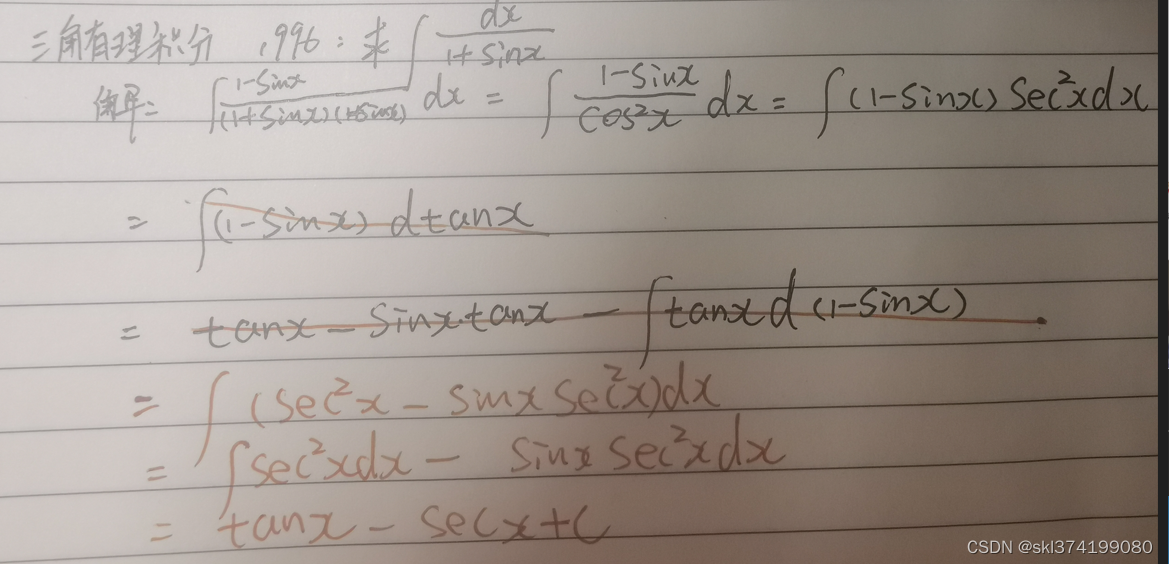 三角有理积分 1996：求 ∫ dx/(1+sinx)
解： ∫ (1-sinx)/((1+sinx)(1-sinx)) dx = ∫ (1-sinx)/cos²x dx = ∫ (1-sinx) sec²x dx
= ∫(1-sinx) dtanx
= tanx - sinx tanx - ∫tanx d (1-sinx)
= ∫ (sec²x - sinx sec²x)dx
= ∫sec²xdx - sinx sec²xdx
= tanx - secx+C
CSDN @skl374199080